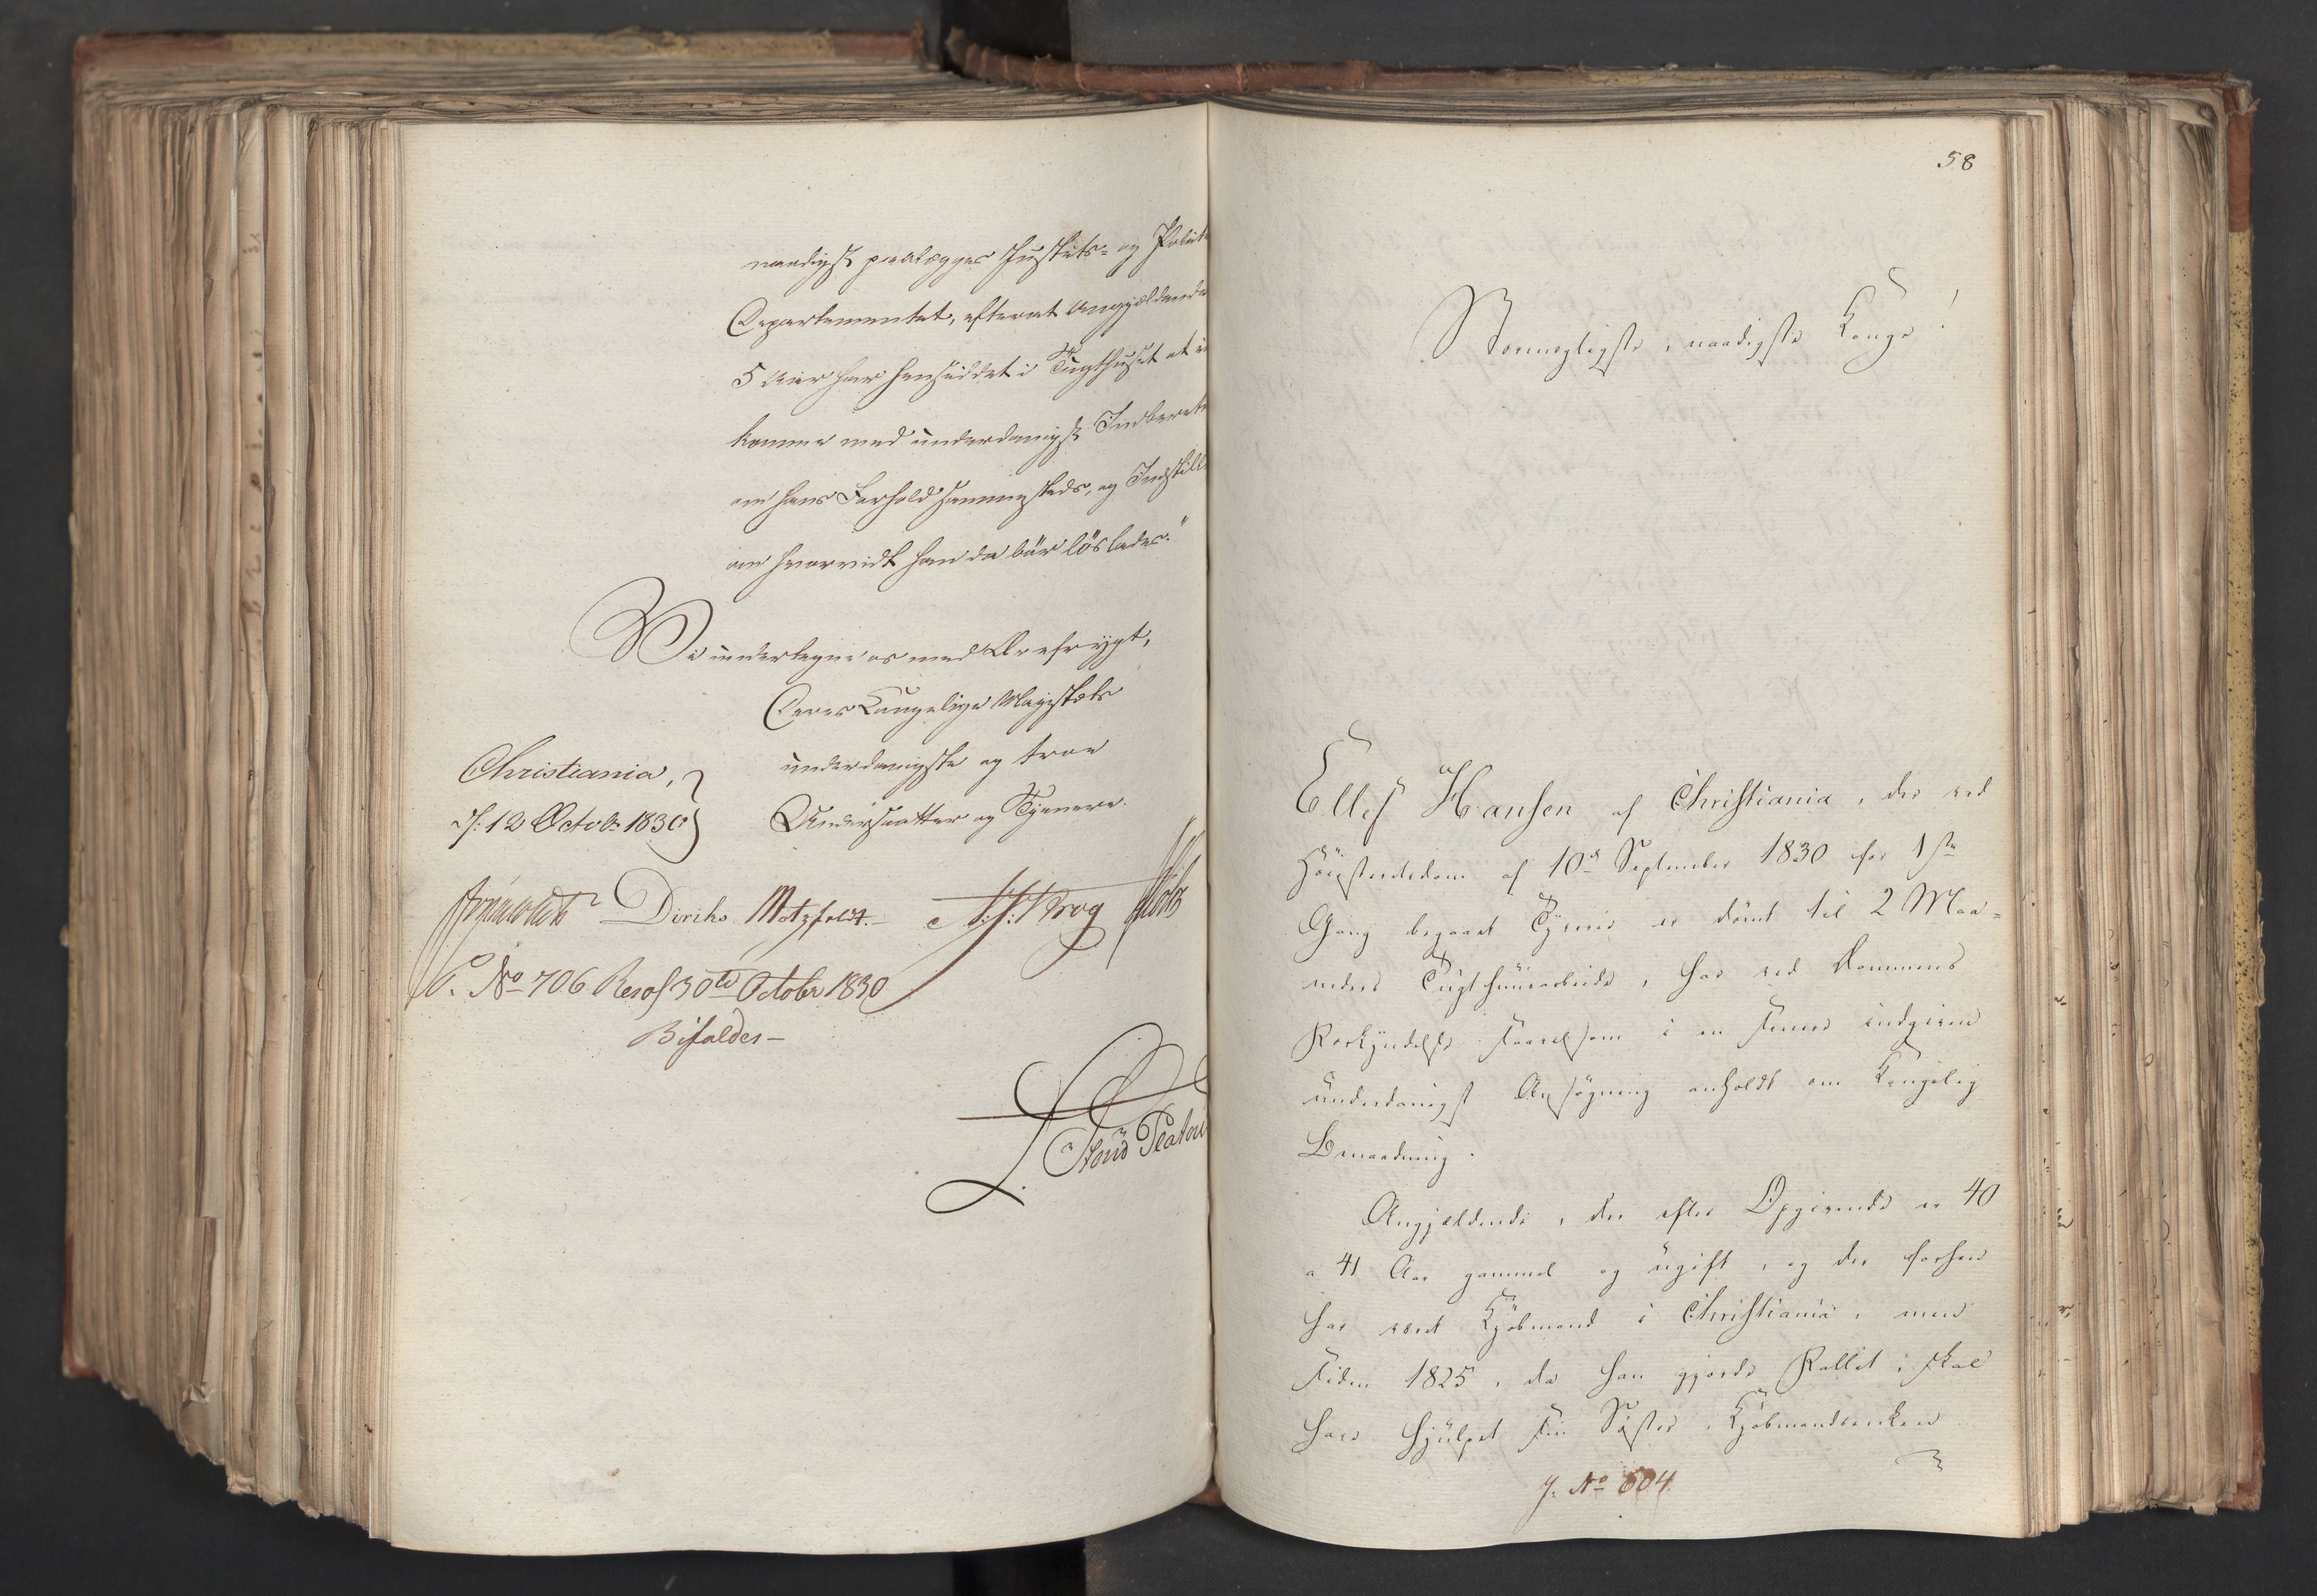 naadigst paalægges Justits- og Politi
Departementet, efterat Angjældende
5 Aar har hensiddet i Tugthuset at in
komme med underdanigst Indberetn
om hans Forhold sammesteds, og Indstilli
om hvorvidt han da bör löslades."
Vi undertegne os med Ærefrygt,
Deres Kongelige Majestæts
underdanigste og troe
Undersaatter og Tjenere.
Christiania,
d: 12 Octob: 1830
Diriks Motzfeldt. Krog
No 706. Resol 30te Octobr 1830
Bifaldes —
58
Stormægtigste, naadigste Konge!
Ellef Hansen af Christiania, der ved
Höiesteretsdom af 10de September 1830 for 1ste
Gang begaaet Tyverie er dömt til 2 Maa-
neders Tugthuusarbeide, har ved Dommens
Forkyndelse saavelsom i en senere indgiven
underdanigst Ansögning anholdt om Kongelig
Benaadning.
Angjældende, der efter Opgivende er 40
a 41 Aar gammel og ugift, og der forhen
har været Kjöbmand i Christiania, men
siden 1825, da han gjorde Fallit, skal
have hjulpet sin Söster, Kjöbmandsenken
J. No 604.